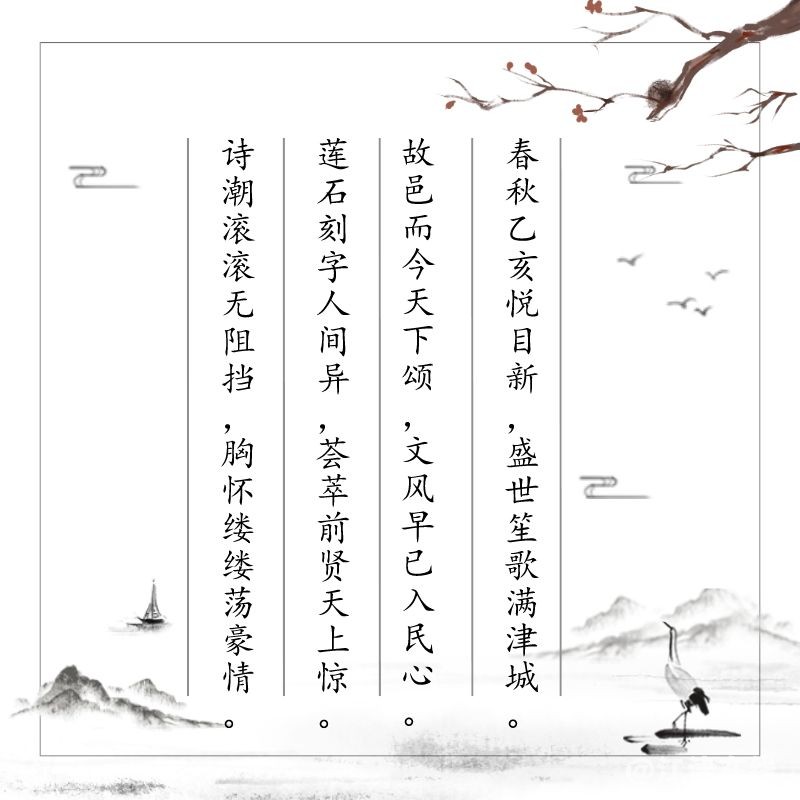 春秋乙亥悦目新，盛世笙歌满津城。
故邑而今天下颂，文风早已入民心。
莲石刻字人间异，荟萃前贤天上惊。
诗潮滚滚无阻挡，胸怀缕缕荡豪情。